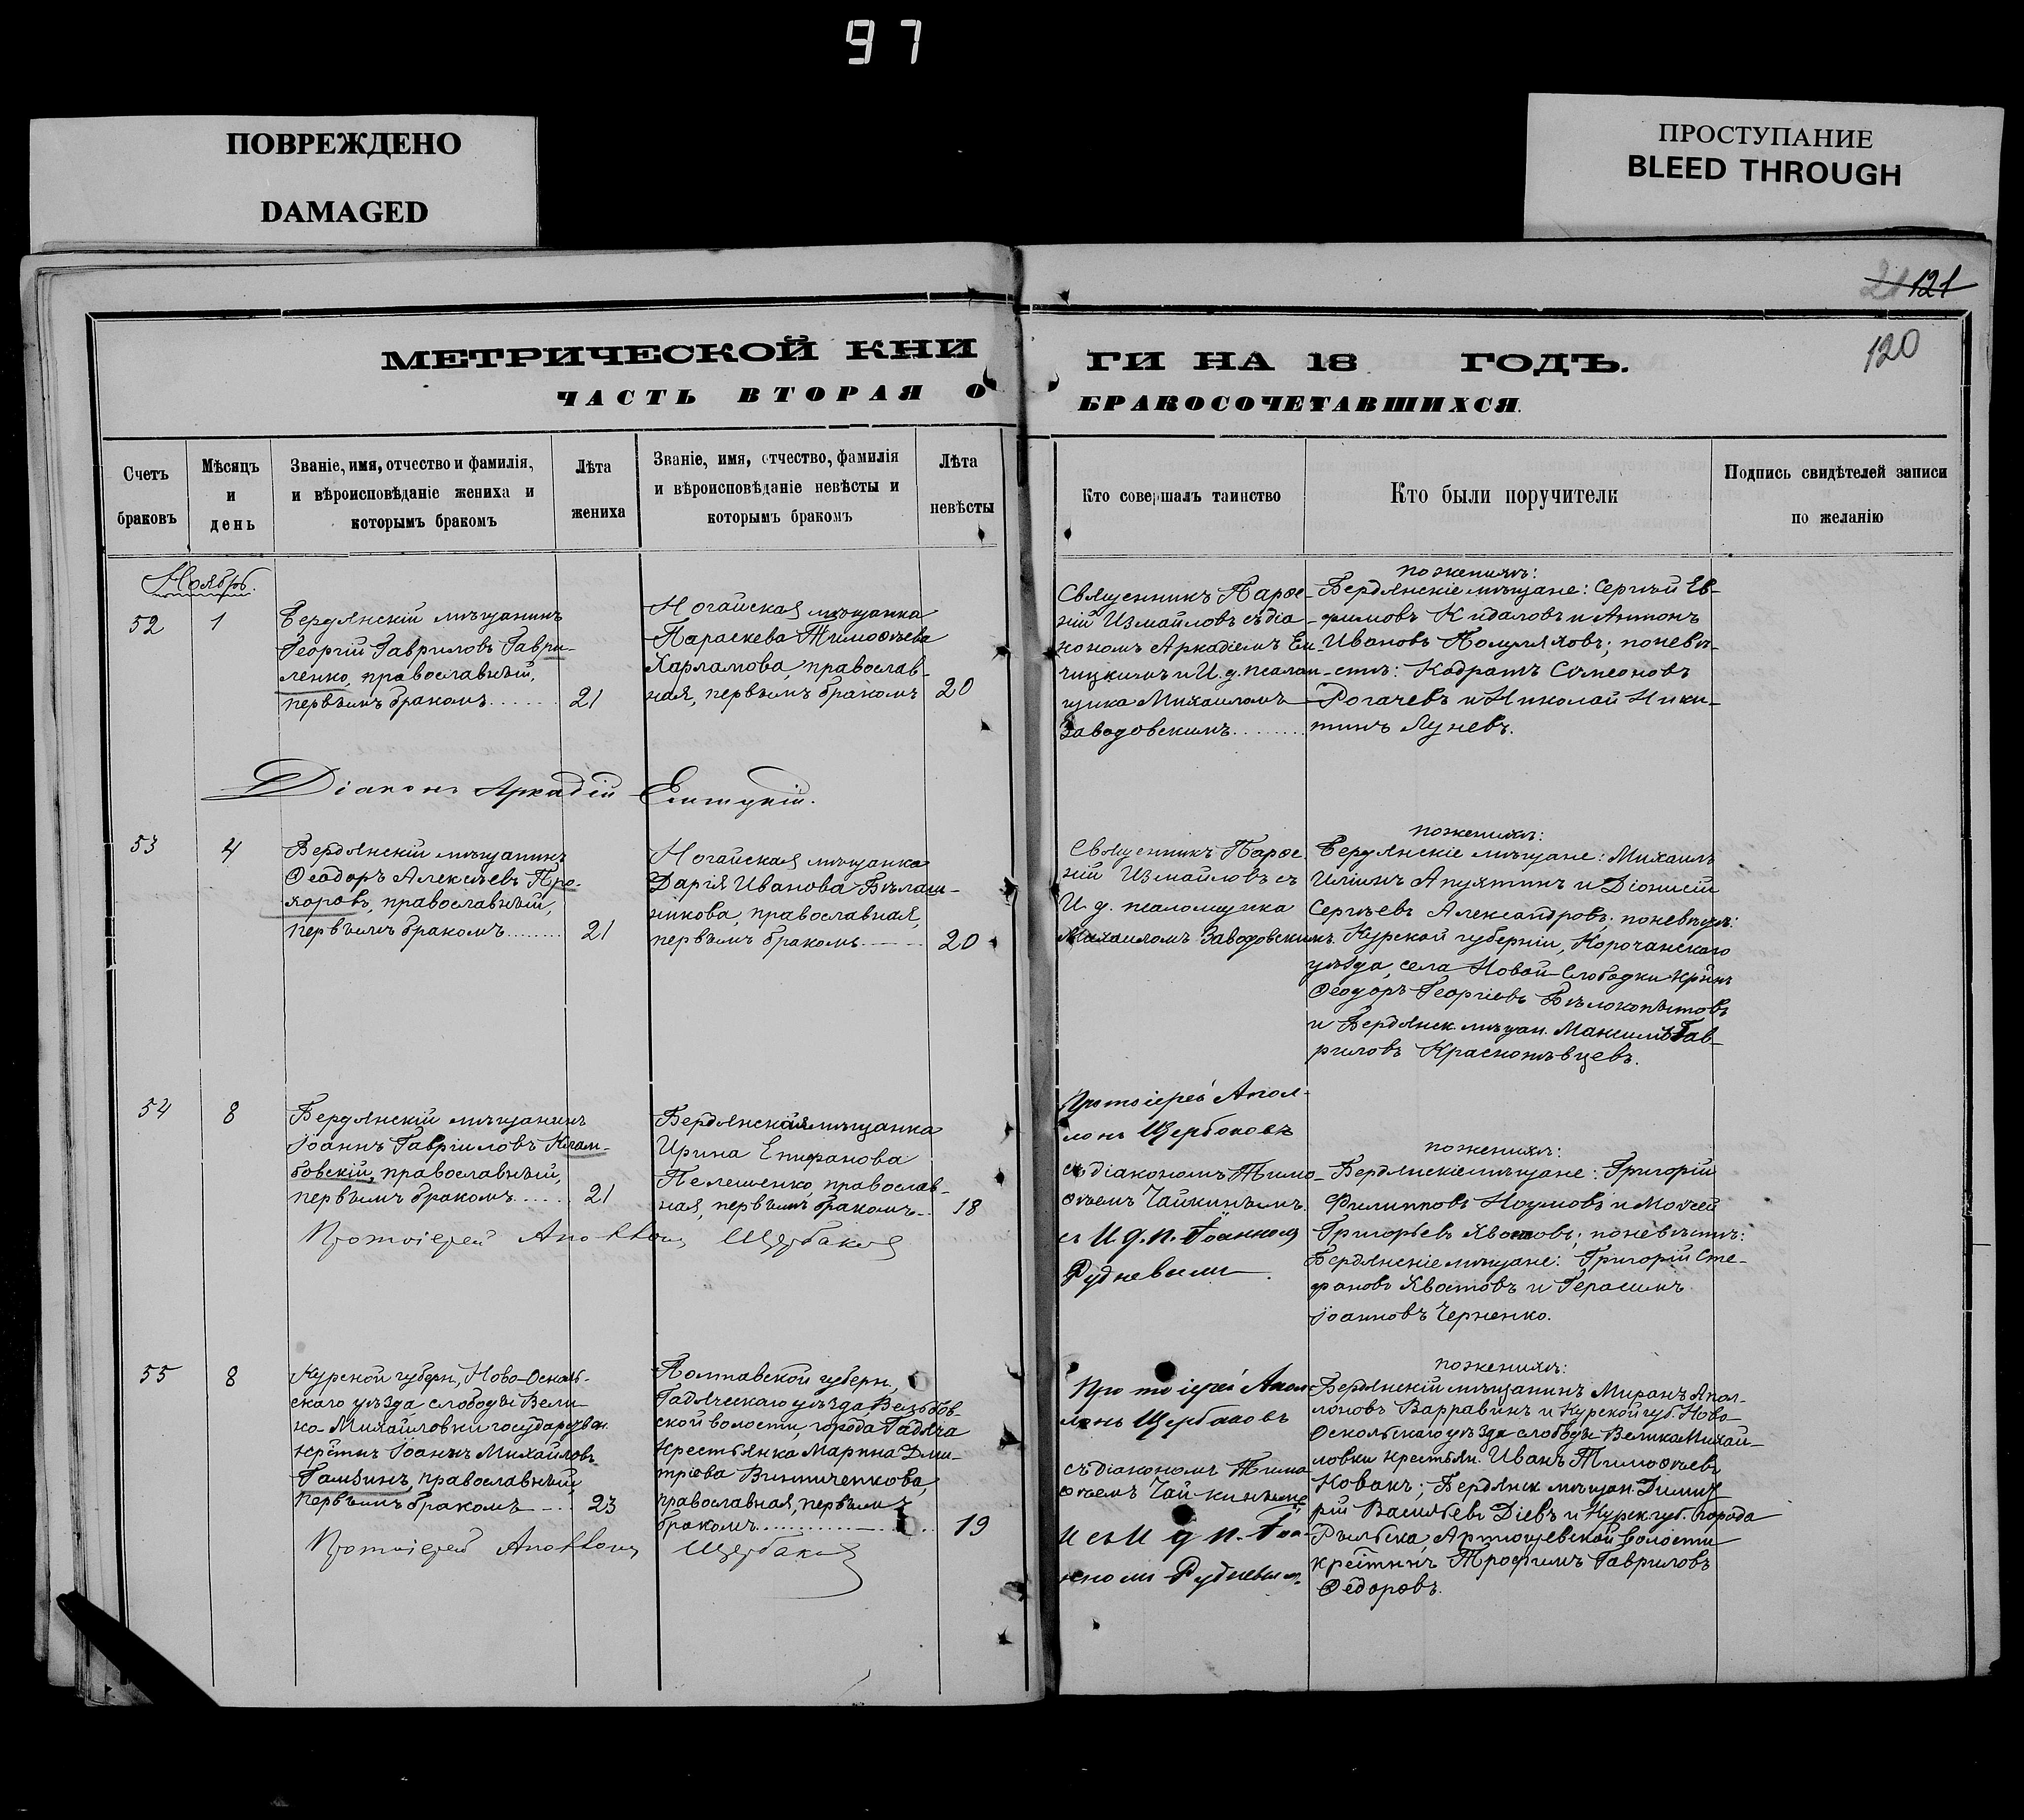 97
ПОВРЕЖДЕНО
DAMAGED
ПРОСТУПАНИЕ
BLEED THROUGH
21 121
120
МЕТРИЧЕСКОЙ КНИ ГИ НА 18 ГОДЪ.
ЧАСТЬ ВТОРАЯ О БРАКОСОЧЕТАВШИХСЯ.
Счетъ
браковъ
Мѣсяцъ
и
день
Званіе, имя, отчество и фамилія,
и вѣроисповѣданіе жениха и
которымъ бракомъ
Лѣта
жениха
Званіе, имя, отчество, фамилія
и вѣроисповѣданіе невѣсты и
которымъ бракомъ
Лѣта
невѣсты
Кто совершалъ таинство
Кто были поручители
Подпись свидѣтелей записи
по желанію
Ноябрь.
52
1
Бердянскій мѣщанинъ
Георгій Гавриловъ Гаври-
ленко, православный,
первымъ бракомъ......
21
Ногайская мѣщанка
Параскева Тимоѳѣева
Харламова, православ-
ная, первымъ бракомъ
20
Священникъ Парѳе-
ній Измайловъ съ діа-
кономъ Аркадіемъ Ен-
чицкимъ и И. д. псалом-
щика Михаиломъ
Заводовскимъ.......
по женихѣ:
Бердянскіе мѣщане: Сергѣй Ев-
фимовъ Кидаловъ и Антонъ
Ивановъ Полуляховъ; по невѣ-
стѣ: Кодратъ Сѵмеоновъ
Рогачевъ и Николай Ники-
тинъ Луневъ.
Діаконъ Аркадій Енчицкій.
53
4
Бердянскій мѣщанинъ
Ѳеодоръ Алексѣевъ Про-
хоровъ, православный,
первымъ бракомъ......
21
Ногайская мѣщанка
Дарія Иванова Бѣлаш-
никова, православная,
первымъ бракомъ
20
Священникъ Парѳе
ній Измайловъ съ
И. д. псаломщика
Михаиломъ Заводовскимъ.
по женихѣ:
Бердянскіе мѣщане: Михаилъ
Ильинъ Апухтинъ и Діонисій
Сергѣевъ Александровъ; по невѣстѣ:
Курской губерніи, Корочанскаго
уѣзда, села Новой-Слободки кр-нъ
Ѳеодоръ Георгіевъ Бѣлокопытовъ
и Бердянск. мѣщан. Максимъ Гав-
риловъ Краснопѣвцевъ.
54
8
Бердянскій мѣщанинъ
Іоаннъ Гавріиловъ
бовскій, православный,
первымъ бракомъ......
21
Бердянская мѣщанка
Ирина Епифанова
Пелешенко, православ-
ная, первымъ бракомъ..
18
Протоіерей Апол-
лонъ Щербаковъ
съ діакономъ Тимо-
ѳѣемъ Чайкинымъ
съ И. д. п. Іоанномъ
Рудневымъ.
по женихѣ:
Бердянскіе мѣщане: Григорій
Филипповъ Наумовъ и Моѵсей
Григорьевъ Хвостовъ; по невѣстѣ:
Бердянскіе мѣщане: Григорій Сте-
фановъ Хвостовъ и Герасимъ
Іоанновъ Черненко.
Протоіерей Аполлонъ Щербаковъ
55
8
Курской губерн., Ново-Осколь-
скаго уѣзда слободы Вели-
ко-Михайловки государствен.
кр-тнъ Іоаннъ Михайловъ
православный,
первымъ бракомъ
23
Полтавской губерн.,
Гадяческаго уѣзда
ской волости, города Гадяча
крестьянка Марина Дми-
тріева Винниченкова,
православная, первымъ
бракомъ............
19
Протоіерей Апол-
лонъ Щербаковъ
съ діакономъ Тимо
ѳѣемъ Чайкинымъ
и съ И д п. Іоа-
нномъ Рудневымъ.
по женихѣ:
Бердянскій мѣщанинъ Миронъ Апол-
лоновъ Варравинъ и Курской губ. Ново-
Оскольскаго уѣзда слободы Велико Михай-
ловки крестьян. Иванъ Тимоѳѣевъ
Новакъ; Бердянск мѣщан. Димит
рій Васильевъ Діевъ и Курск. губ. города
Рыльска, Артюшевской волости
крестнинъ Трофимъ Гавриловъ
Ѳедоровъ.
Протоіерей Аполлонъ Щербаковъ